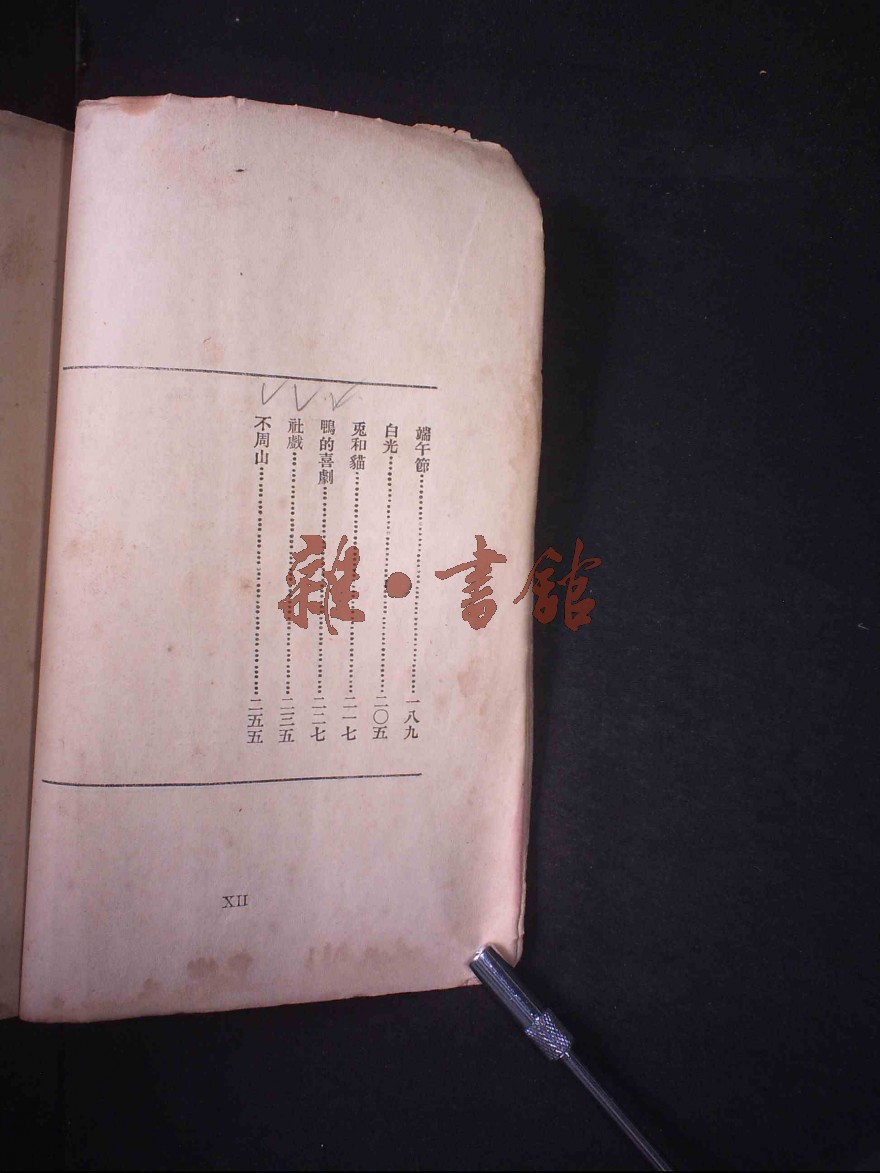 端午節⋯⋯⋯⋯一八九
白光⋯⋯⋯⋯二〇五
兎和貓⋯⋯⋯⋯二一七
鴨的喜劇⋯⋯⋯⋯二二七
社戲⋯⋯⋯⋯二三五
不周山⋯⋯⋯⋯二五五
雜•書館
XII